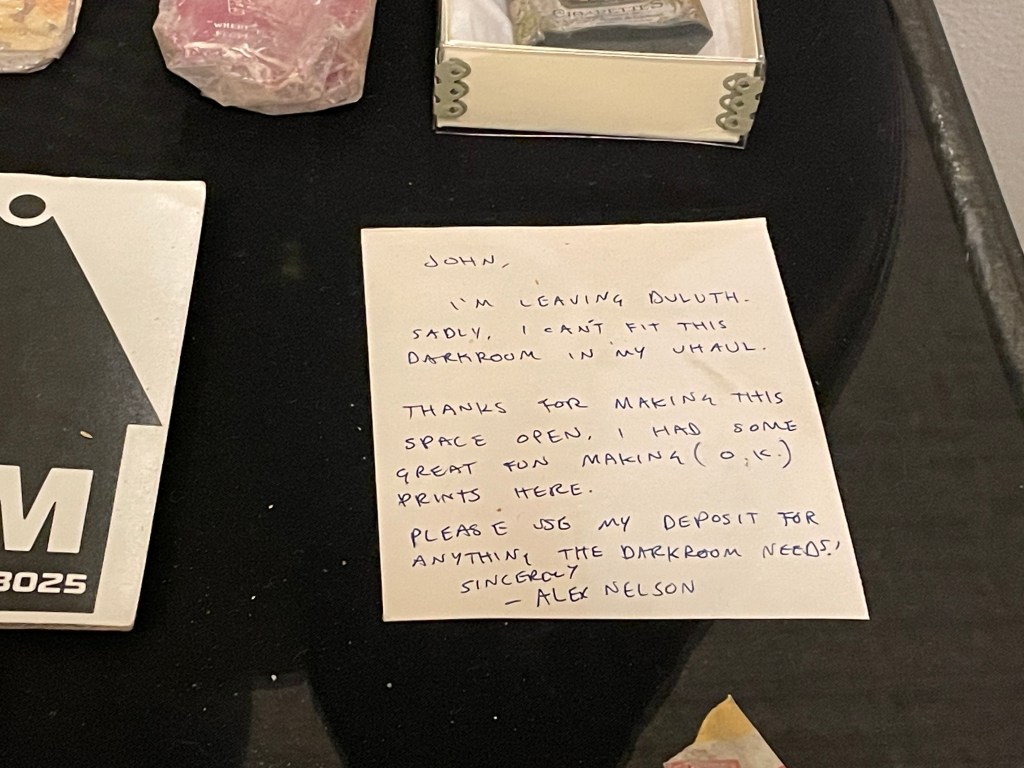 CIGARETTES
M
3025
JOHN,
I'M LEAVING DULUTH.
SADLY, I CAN'T FIT THIS
DARKROOM IN MY UHAUL.
THANKS FOR MAKING THIS
SPACE OPEN. I HAD SOME
GREAT FUN MAKING (O.K.)
PRINTS HERE.
PLEASE USE MY DEPOSIT FOR
ANYTHING THE DARKROOM NEEDS!
SINCERELY
- ALEX NELSON